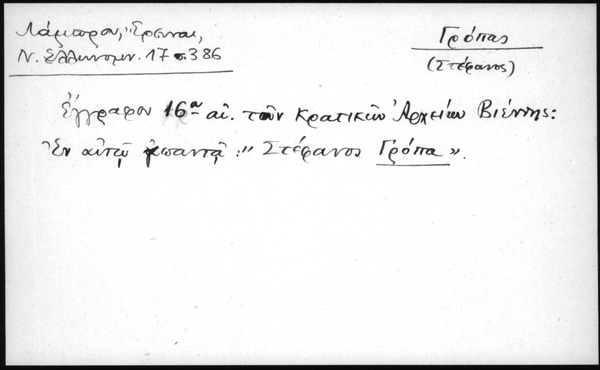 Λάμπρου, Ἔρευναι,
Ν. Ἑλληνομν. 17 σ. 386
Γρόπας
(Στέφανος)
Ἔγγραφον 16ου αἰ. τῶν Κρατικῶν Ἀρχείων Βιέννης:
Ἐν αὐτῷ ἀπαντᾷ: "Στέφανος Γρόπα".